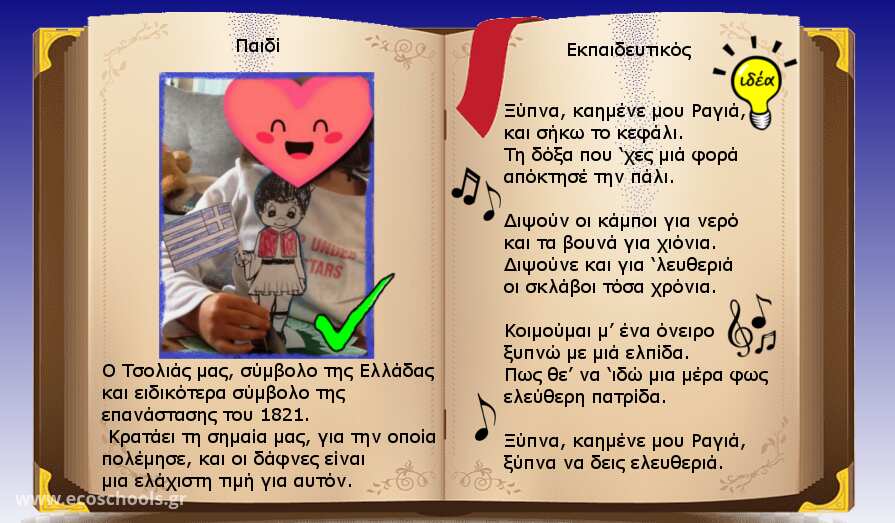 Παιδί
Ο Τσολιάς μας, σύμβολο της Ελλάδας
και ειδικότερα σύμβολο της
επανάστασης του 1821.
Κρατάει τη σημαία μας, για την οποία
πολέμησε, και οι δάφνες είναι
μια ελάχιστη τιμή για αυτόν.
UNDER
STARS
Εκπαιδευτικός
ιδέα
Ξύπνα, καημένε μου Ραγιά,
και σήκω το κεφάλι.
Τη δόξα που ‘χες μιά φορά
απόκτησέ την πάλι.
Διψούν οι κάμποι για νερό
και τα βουνά για χιόνια.
Διψούνε και για ‘λευθεριά
οι σκλάβοι τόσα χρόνια.
Κοιμούμαι μ’ ένα όνειρο
ξυπνώ με μιά ελπίδα.
Πως θε’ να ‘ιδώ μια μέρα φως
ελεύθερη πατρίδα.
Ξύπνα, καημένε μου Ραγιά,
ξύπνα να δεις ελευθεριά.
www.ecoschools.gr